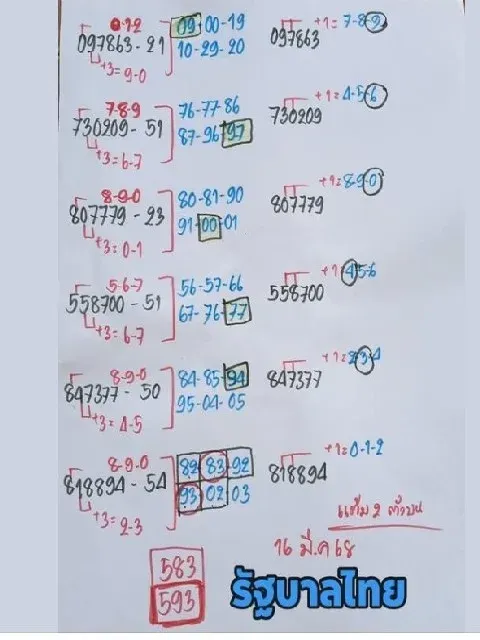 0-1-2 09-00-19 +1= 7-8-9
097863-21 10-29-20 097863
+3=9-0
7-8-9 76-77-86 +1=4-5-6
730209-51 87-96-97 730209
+3=6-7
8-9-0 80-81-90 +1=8-9-0
807779-23 91-00-01 807779
+3=0-1
5-6-7 56-57-66 +1=4-5-6
558700-51 67-76-77 558700
+3=6-7
8-9-0 84-85-94 +1=2-3-4
847377-50 95-04-05 847377
+3=4-5
8-9-0 82 83-92 +1=0-1-2
818894-54 93 02 03 818894
+3=2-3
แต้ม 2 ตัวบน
16 มี.ค 68
583
593
รัฐบาลไทย